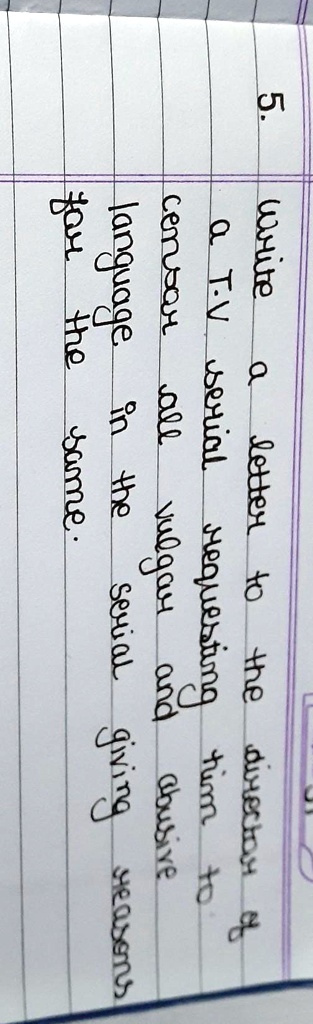 5. Write a letter to the director of
a T.V serial requesting him to
censor all vulgar and abusive
language in the serial giving reasons
for the same.